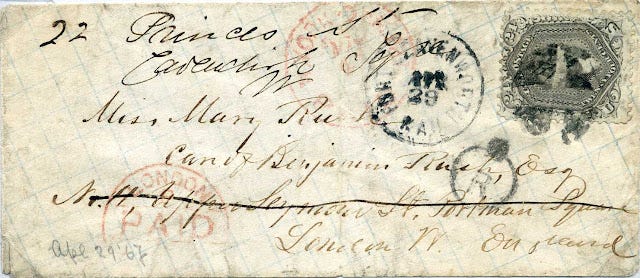 22 Princes St
Cavendish Sq
W
Miss Mary Rush
care of Benjamin Rush, Esq
No. 11, Upper Seymour St. Portman Square
London W. England
FORT LEAVENWORTH
APR
29
KAN
LONDON
PAID
Apl 29 '67